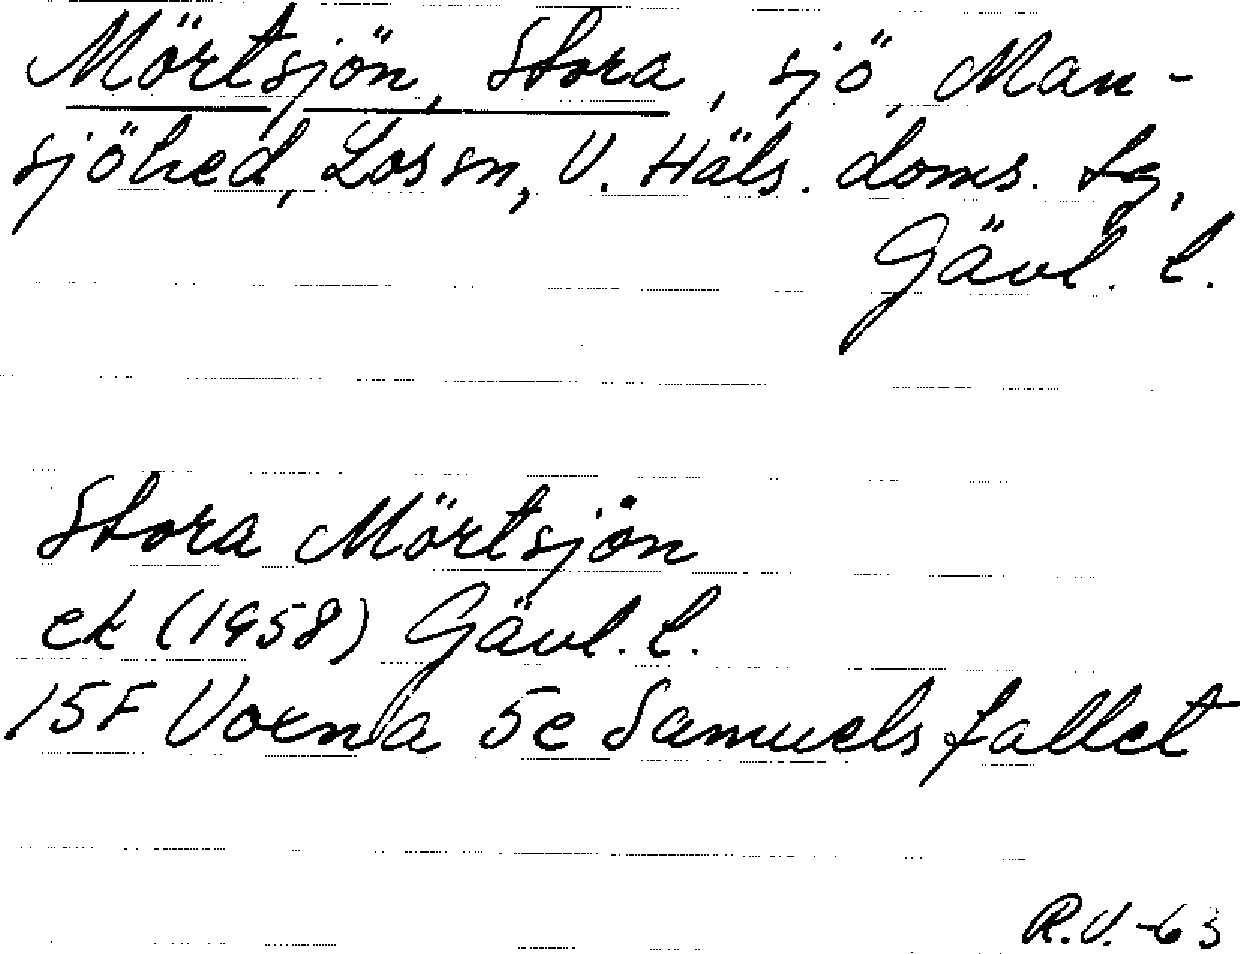 Mörtsjön, Stora, sjö, Man-
sjöhed, Los sn, V. Häls. doms. tg,
Gävl. l.
Stora Mörtsjön
ek (1958) Gävl. l.
15F Voxna 5e Samuelsfallet
R.V. -63